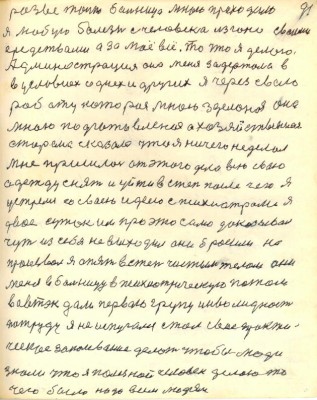 91
разве только больница мною проходило
я любую болезнь с человека изгоню своими
средствами а за моё всё, то что я делаю.
Администрация она меня задержала в
в условиях одних и других я через свою
работу которая мною зделоная она
мною подготовленоя а хозяйственная
старона сказала что я ничего неделал
мне пришлось от этого дела всю свою
одежду снять и уйти в степ после чего я
устрем со своей идеею с психиатрами я
двое суток им про это само доказывал
чут из себя не выходил они бросили но
я опять в степ чистым телом они
меня в больницу в психиатрическую
дали первою групу инволидност
потруду я не испугался стал свое практи-
ческое закаливание делат чтобы люди
знали что я полезной человек делаю то
чего было надо всем людям